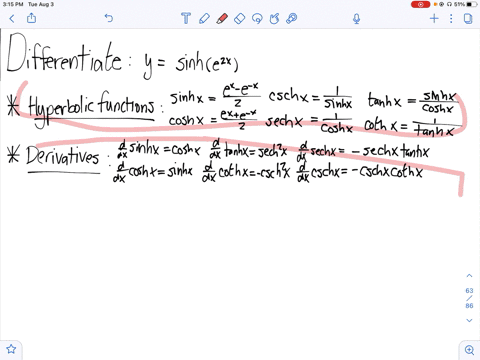 3:15 PM Tue Aug 3
51%
Differentiate: y = sinh(e^2x)
* Hyperbolic functions: sinhx = (e^x-e^-x)/2 cschx = 1/sinhx tanhx = sinhx/coshx
coshx = (e^x+e^-x)/2 sechx = 1/coshx cothx = 1/tanhx
* Derivatives: d/dx sinhx = coshx d/dx tanhx = sech²x d/dx sechx = -sechx tanhx
: d/dx coshx = sinhx d/dx cothx = -csch²x d/dx cschx = -cschx cothx
63
/
86